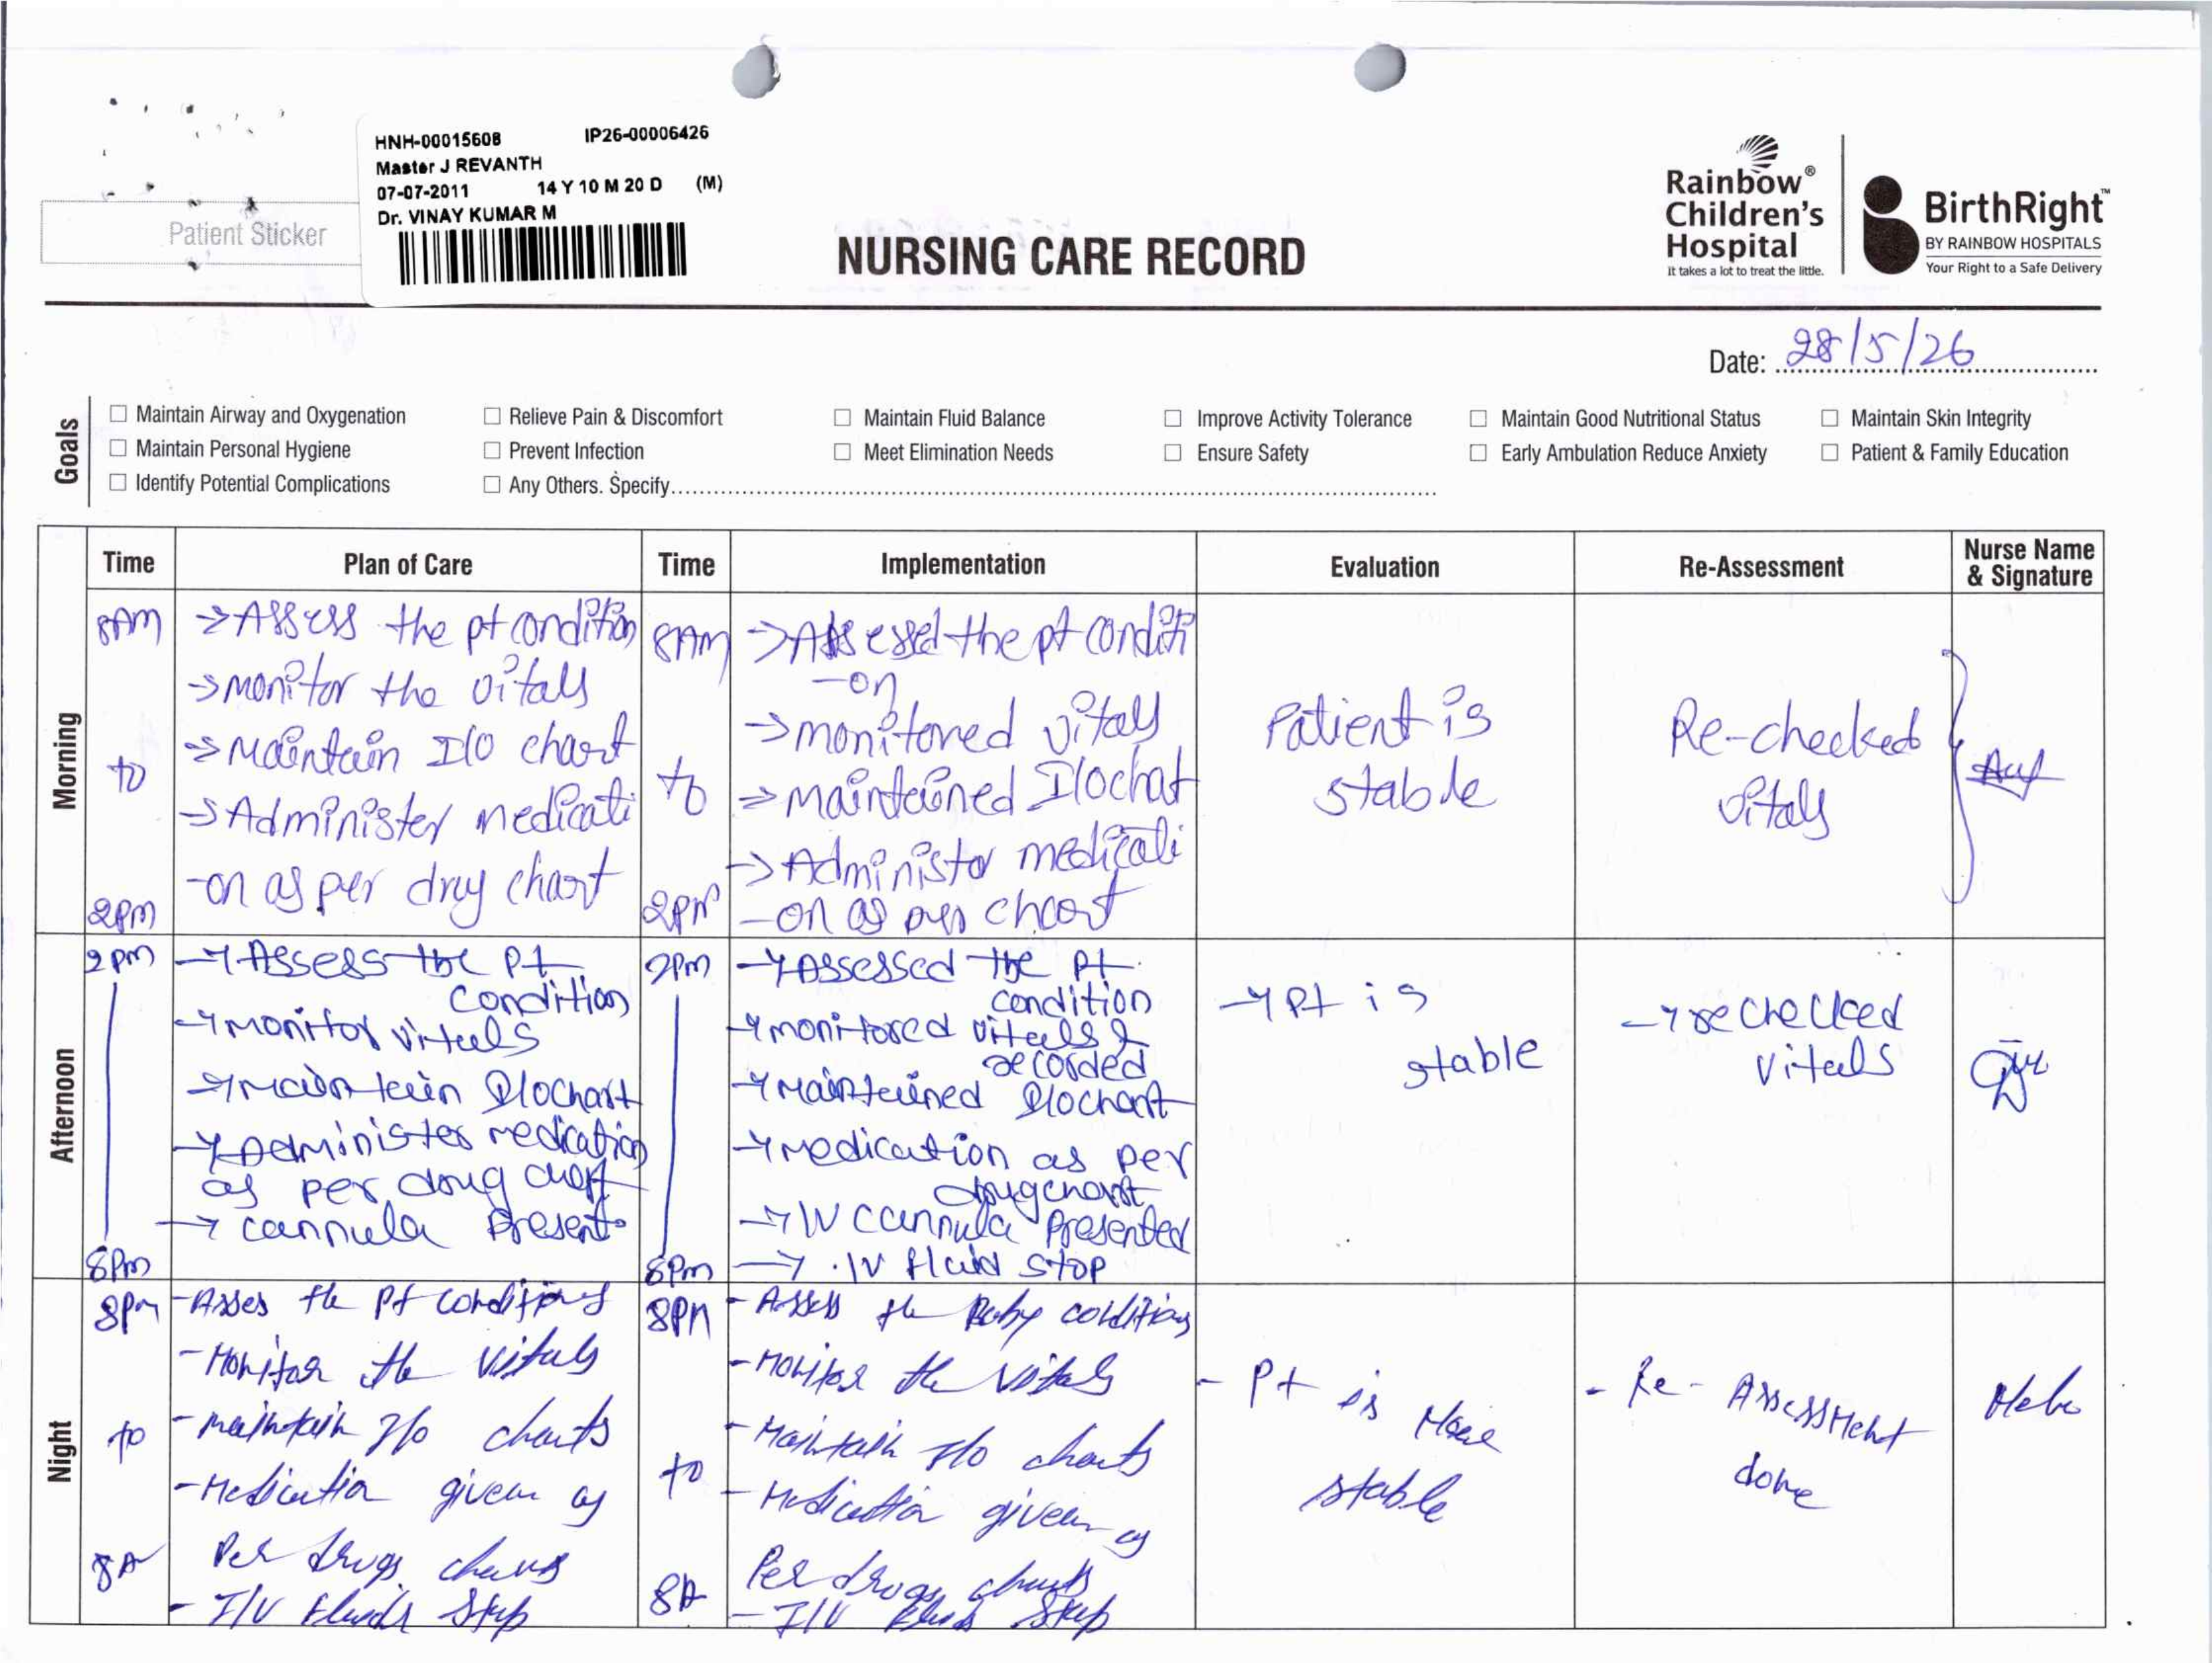 HNH-00015608 IP26-00006426
Master J REVANTH
07-07-2011 14 Y 10 M 20 D (M)
Dr. VINAY KUMAR M
Patient Sticker
NURSING CARE RECORD
Rainbow®
Children's
Hospital
It takes a lot to treat the little.
BirthRight™
BY RAINBOW HOSPITALS
Your Right to a Safe Delivery
Date: 28/5/26
Goals
☐ Maintain Airway and Oxygenation ☐ Relieve Pain & Discomfort ☐ Maintain Fluid Balance ☐ Improve Activity Tolerance ☐ Maintain Good Nutritional Status ☐ Maintain Skin Integrity
☐ Maintain Personal Hygiene ☐ Prevent Infection ☐ Meet Elimination Needs ☐ Ensure Safety ☐ Early Ambulation Reduce Anxiety ☐ Patient & Family Education
☐ Identify Potential Complications ☐ Any Others. Specify
Time Plan of Care Time Implementation Evaluation Re-Assessment Nurse Name
& Signature
Morning
8AM
to
2pm
→Assess the pt condition
→monitor the vitals
→Maintain I/O chart
→Administer medicati
-on as per drug chart
8AM
to
2pm
→Assessed the pt conditi
-on
→monitored vitals
→maintained I/O chat
→Administor medicati
-on as per chart
Patient is
stable
Re-checked
vitals
Afternoon
2pm
8pm
→Assess the pt
condition
→monitor vitals
→maintain I/O chart
→Administer medication
as per drug chart
→ cannula present
2pm
8pm
→Assessed the pt
condition
→monitored vitals &
recorded
→Maintained I/O chart
→medication as per
drug chart
→IV cannula presented
→ IV fluid stop
→pt is
stable
→rechecked
vitals
Night
8pm
to
8A
-Asses the pt conditions
-Monitor the vitals
-maintain I/O charts
-Medication given as
Per drugs charts
- I/V fluids stop
8pm
to
8A
- Assess the Baby conditions
-Monitor the vitals
-Maintain I/O charts
- Medication given as
Per drugs charts
- I/V fluids stop
- Pt is
stable
- Re- Assessment
done